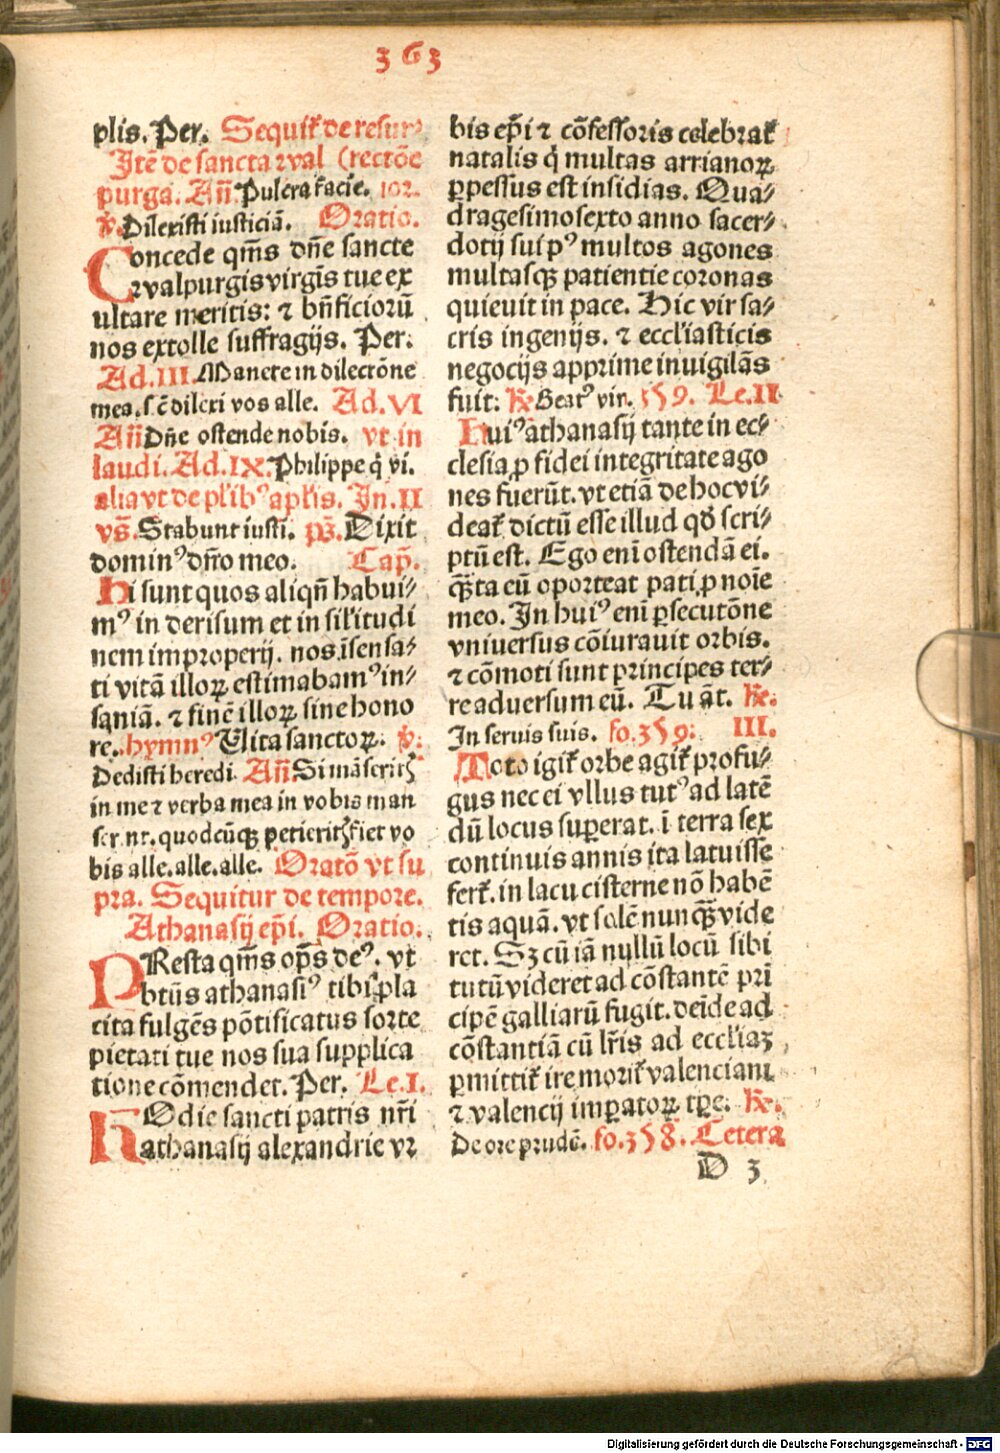 363
plis. Per. Sequit̃ de resur
Itẽ de sancta wal (rectõe
purga. Añ Pulcra facie. 102.
℣. Dilexisti iusticiã. Oratio.
Concede qm̃s dñe sancte
walpurgis virgis̃ tue ex
ultare meritis: ⁊ bñficiorũ
nos extolle suffragijs. Per.
Ad. III. Manete in dilectõne
mea. s̃ c̃ dilexi vos alle. Ad. VI
Añ Dñe ostende nobis. vt in
laudi. Ad. IX. Philippe q̇ vi.
alia vt de pl̃ib⁹ apl̃is. In. II
vs̃. Stabunt iusti. ps̃. Dixit
domin⁹ dño meo. Cap̃.
Hi sunt quos aliqñ habui⸗
m⁹ in derisum et in sil̃itudi
nem improperij. nos ĩsensa⸗
ti vitã illoꝝ estimabam⁹ in⸗
saniã. ⁊ finẽ illoꝝ sine hono
re. hymn⁹ Vita sanctoꝝ. ℣.
Dedisti heredi. Añ Si mãserit̃
in me ⁊ verba mea in vobis man
serint. quodcũqꝫ petierit̃ fiet vo
bis alle. alle. alle. Oratõ vt su
pra. Sequitur de tempore.
Athanasij ep̃i. Oratio.
PResta qm̃s op̃s de⁹. vt
btũs athanasi⁹ tibi ꝑ pla
cita fulgẽs põtificatus sorte
pietati tue nos sua supplica
tione cõmendet. Per. Le. I.
HOdie sancti patris nr̃i
athanasij alexandrie vr
bis ep̃i ⁊ cõfessoris celebrat̃
natalis q̇ multas arrianoꝝ
ꝑpessus est insidias. Qua⸗
dragesimosexto anno sacer⸗
dotij sui p⁹ multos agones
multasqꝫ patientie coronas
quieuit in pace. Hic vir sa⸗
cris ingenijs. ⁊ eccl̃iasticis
negocijs apprime inuigilãs
fuit: ℟ Beat⁹ vir. 359. Le. II
Hui⁹ athanasij tante in ec⸗
clesia ꝓ fidei integritate ago
nes fuerũt. vt etiã de hoc vi⸗
deat̃ dictũ esse illud qd̃ scri⸗
ptũ est. Ego eni ostendã ei.
q̃ta eũ oporteat pati ꝓ noĩe
meo. In hui⁹ eni ꝑsecutõne
vniuersus cõiurauit orbis.
⁊ cõmoti sunt principes ter⸗
re aduersum eũ. Tu ãt. ℟.
In seruis suis. fo. 359: III.
Toto igit̃ orbe agit̃ profu⸗
gus nec ei vllus tut⁹ ad latẽ
dũ locus superat. ĩ terra sex
continuis annis ita latuisse
fert̃. in lacu cisterne nõ habẽ
tis aquã. vt solẽ nunq̃ vide
ret. Sꝫ cũ iã nullũ locũ sibi
tutũ videret ad cõstantẽ pri
cipẽ galliarũ fugit. deĩde ad
cõstantiã cũ lr̃is ad eccl̃iaꝫ
ꝑmittit̃ ire morit̃ valenciani
⁊ valencij imꝑatoꝝ tp̃e. ℟.
De ore prudẽ. fo. 358. Cetera
D 3
Digitalisierung gefördert durch die Deutsche Forschungsgemeinschaft - DFG